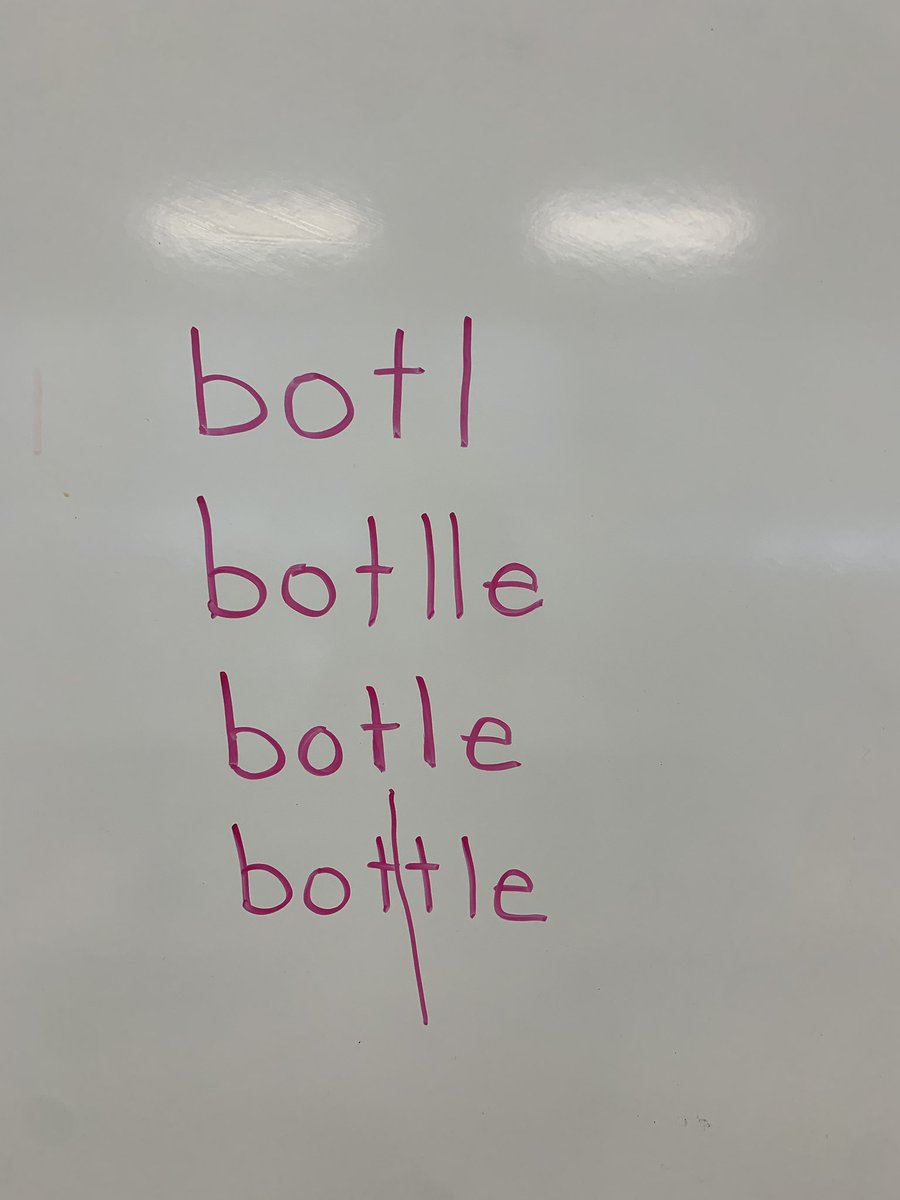 botl
botlle
botle
bottle